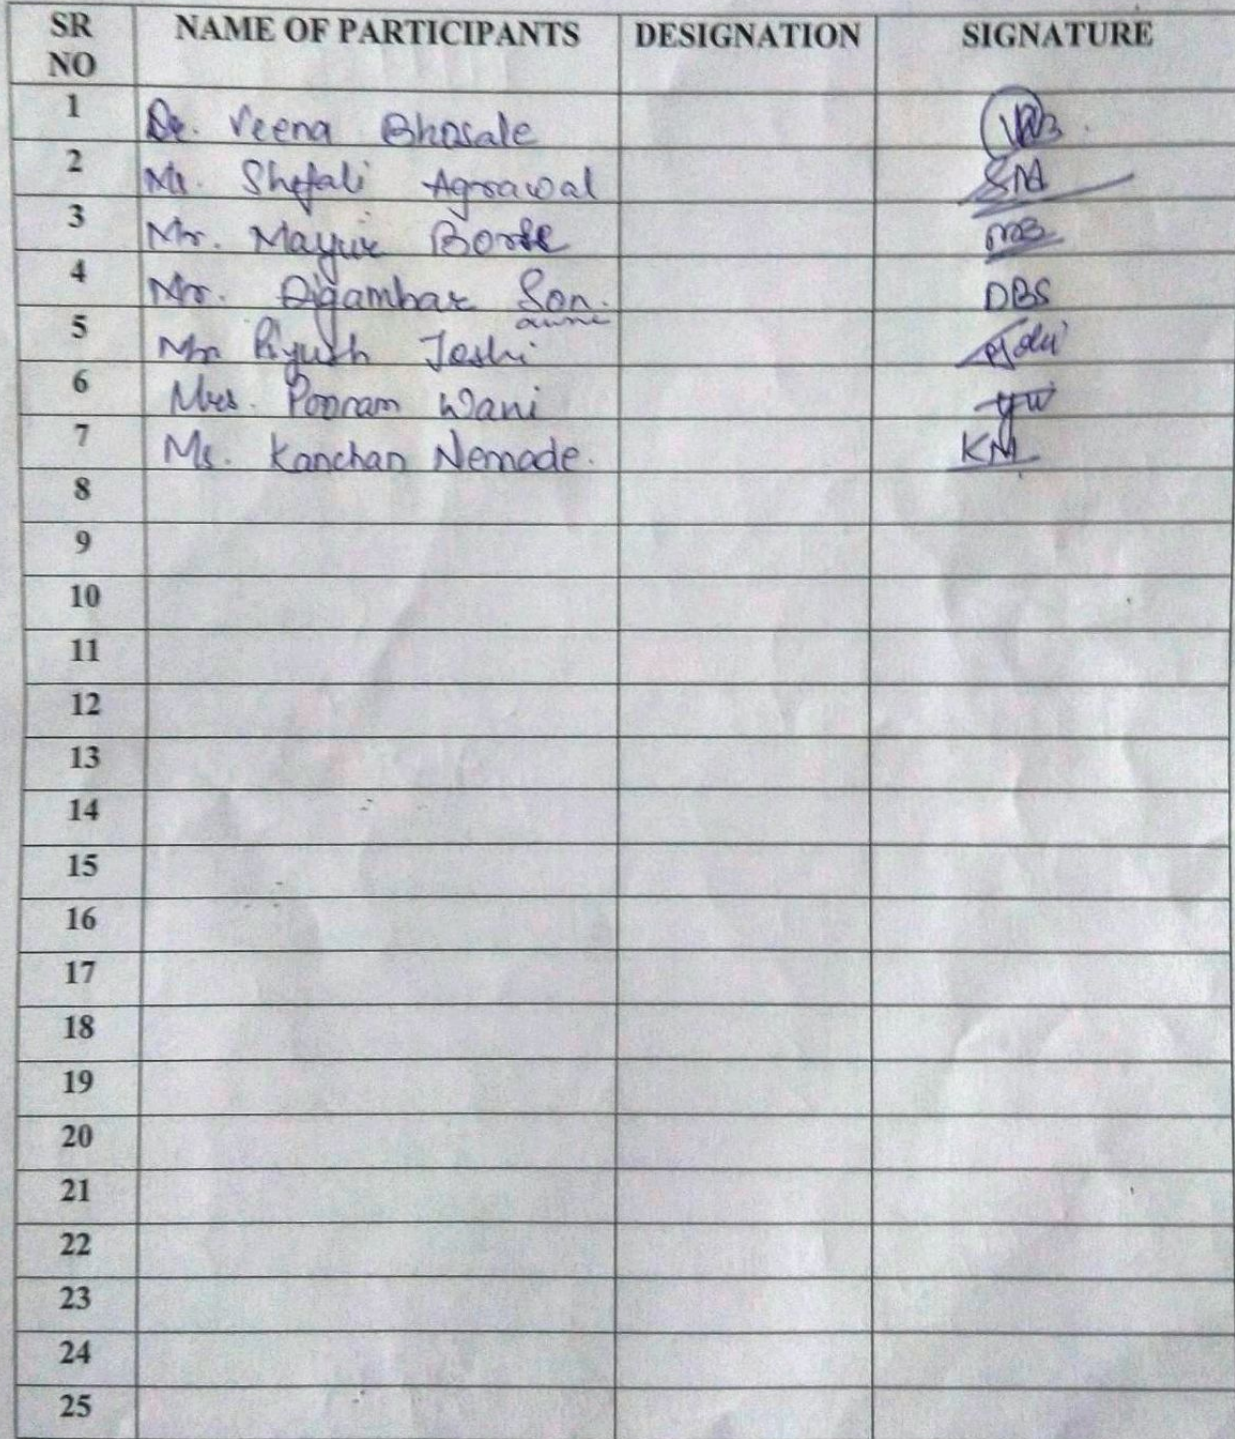 SR NO NAME OF PARTICIPANTS DESIGNATION SIGNATURE
1 Dr. Veena Bhosale VRB.
2 Ms. Shefali Agrawal SNA
3 Mr. Mayur Borse MB
4 Mr. Digambar Son. DBS
awne
5 Mr. Piyush Joshi
6 Mrs. Poonam Wani
7 Ms. Kanchan Nemade. KM
8
9
10
11
12
13
14
15
16
17
18
19
20
21
22
23
24
25